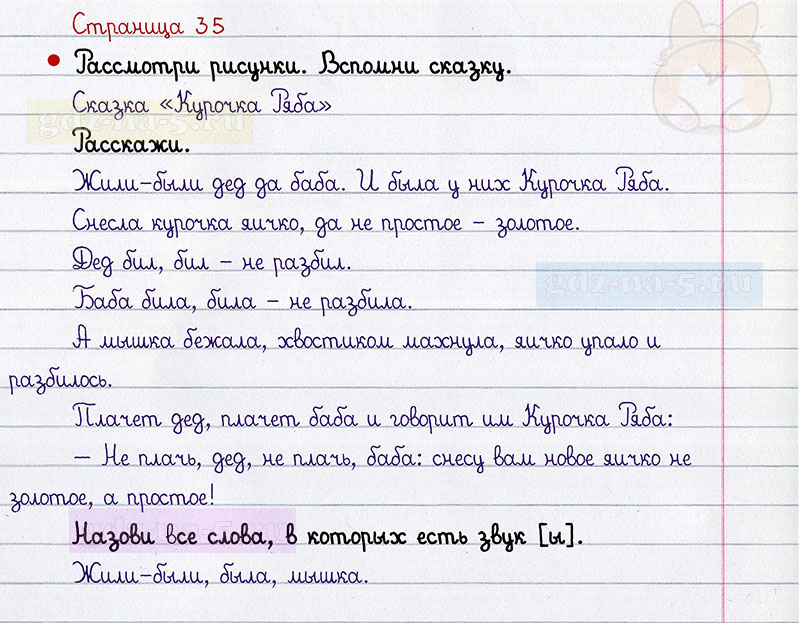 Страница 35
Рассмотри рисунки. Вспомни сказку.
Сказка «Курочка Ряба»
gdz-na-5.ru
Расскажи.
Жили-были дед да баба. И была у них Курочка Ряба.
Снесла курочка яичко, да не простое – золотое.
Дед бил, бил – не разбил.
gdz-na-5.ru
Баба била, била – не разбила.
А мышка бежала, хвостиком махнула, яичко упало и
разбилось.
Плачет дед, плачет баба и говорит им Курочка Ряба:
– Не плачь, дед, не плачь, баба: снесу вам новое яичко не
золотое, а простое!
Назови все слова, в которых есть звук [ы].
Жили-были, была, мышка.